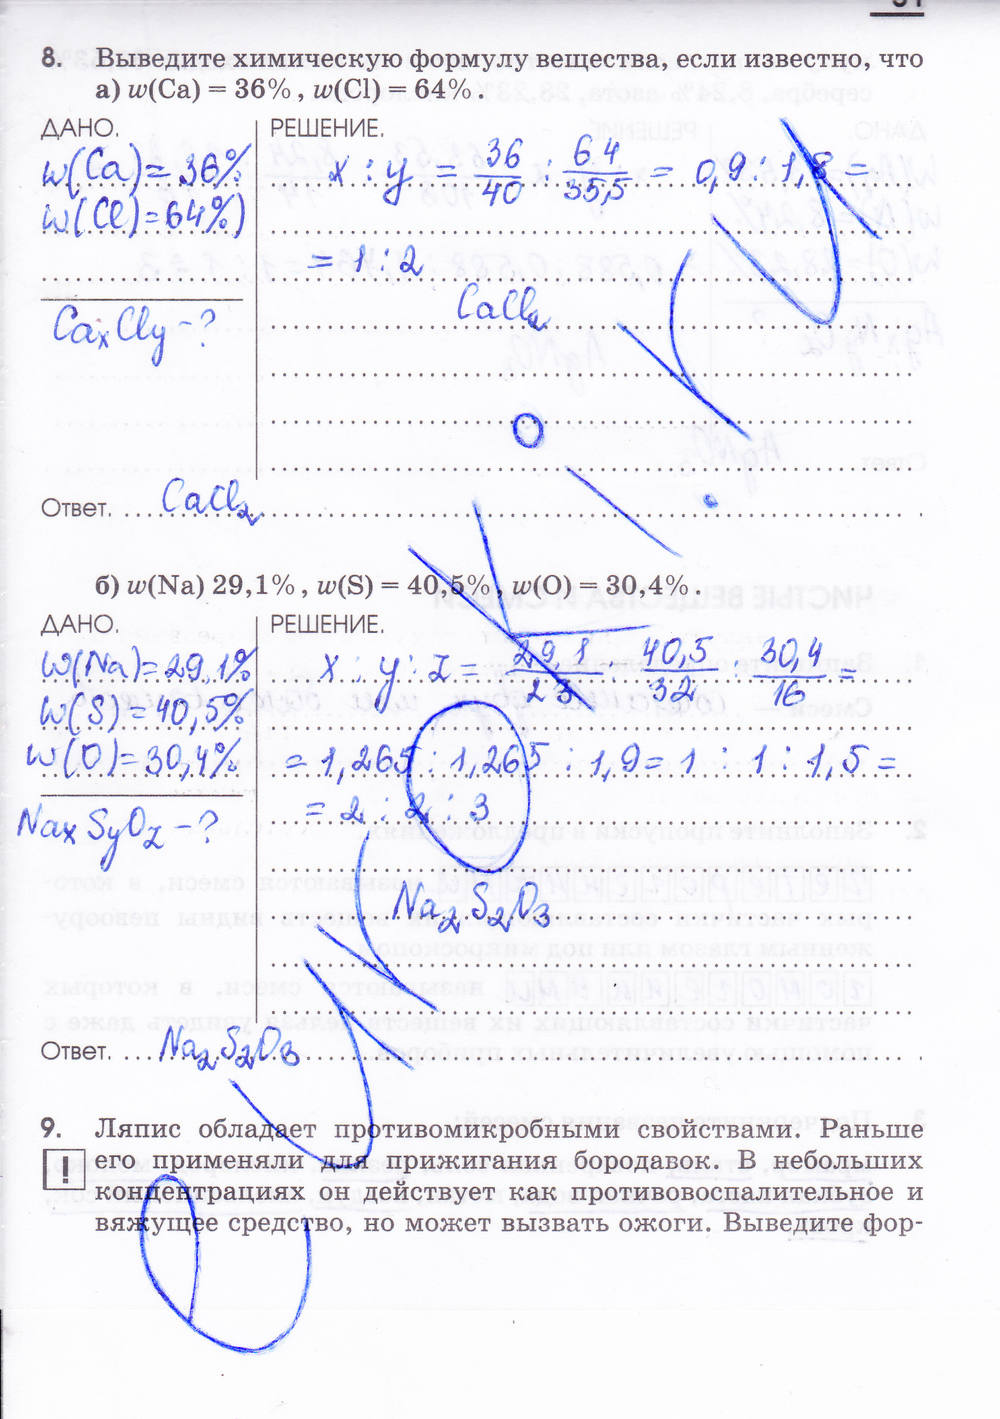 8. Выведите химическую формулу вещества, если известно, что
а) w(Ca) = 36%, w(Cl) = 64%.
ДАНО. РЕШЕНИЕ.
w(Ca)=36% x : y = 36/40 : 64/35,5 = 0,9 : 1,8 =
w(Cl)=64%)
= 1 : 2
CaxCly - ? CaCl2
Ответ. CaCl2
б) w(Na) 29,1%, w(S) = 40,5%, w(O) = 30,4%.
ДАНО. РЕШЕНИЕ.
w(Na)=29,1% x : y : z = 29,1/23 : 40,5/32 : 30,4/16 =
w(S)=40,5%
w(O)=30,4% = 1,265 : 1,265 : 1,9 = 1 : 1 : 1,5 =
= 2 : 2 : 3
NaxSyOz - ?
Na2S2O3
Ответ. Na2S2O3
9. Ляпис обладает противомикробными свойствами. Раньше
! его применяли для прижигания бородавок. В небольших
концентрациях он действует как противовоспалительное и
вяжущее средство, но может вызвать ожоги. Выведите фор-